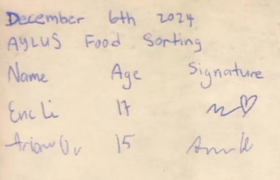 December 6th 2024
AYLUS Food Sorting
Name Age Signature
Eric Li 17
15